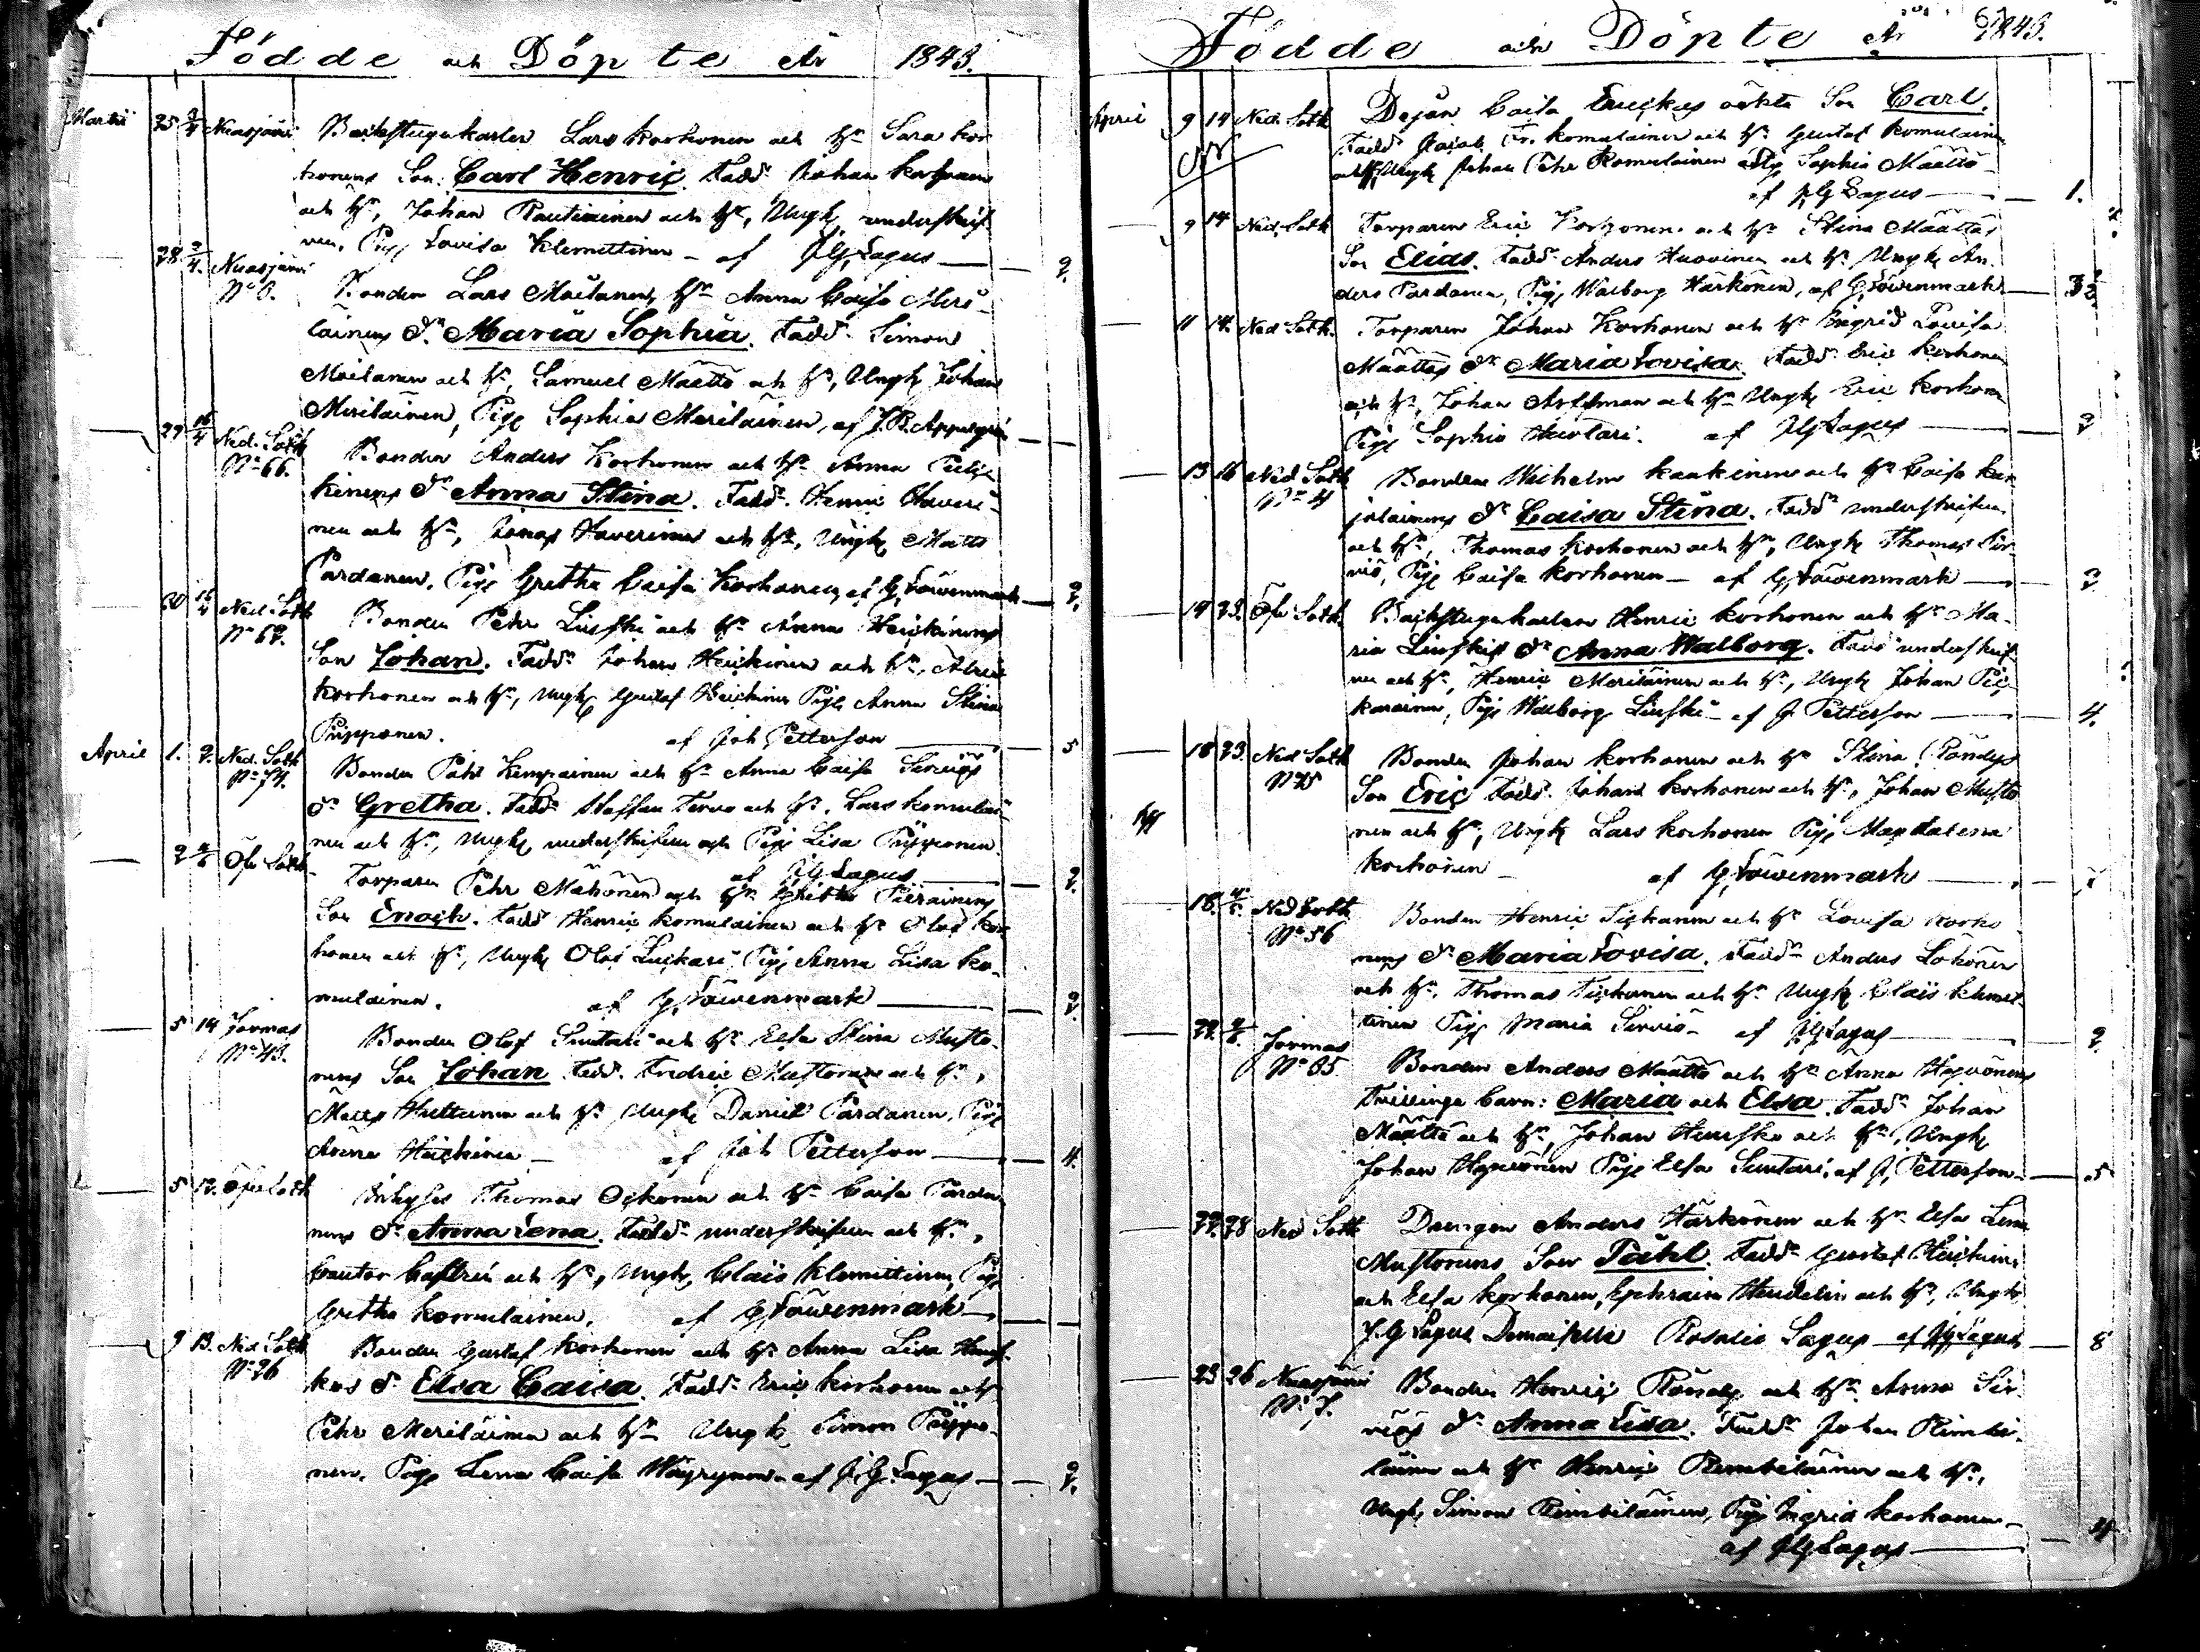 Födde och Döpte År 1843.
Martii 25 2/4 Nuasjärvi Backstugukarlen Lars Korhonen och Hu Sara Kor
honens Son Carl Henric. Fadd: Johan Korhonen
och Hu, Johan Rautiainen och Hu, Yngl. underskrif
ven, Pig. Lovisa Klemettinen – af JG Lagus — 2.
28 2/4 Nuasjärvi
No 6. Bonden Lars Moilanen, Hu Anna Caisa Meri
läinens Dr Maria Sophia. Fadd: Simon
Moilanen och Hu, Samuel Määttä och Hu, Yngl Johan
Meriläinen, Pig. Sophia Meriläinen, af J.B. Appelgrén —
29 16/4 Ned. Sotk
No 66. Bonden Anders Korhonen och Hu Anna
Dr Anna Stina. Fadd: Henric Haveri
nen och Hu, Jonas Haverinen och Hu, Yngl Matts
Pardanen, Pig. Gretha Caisa Korhonen, af G. Löwenmark — 2.
30 16/4 Ned. Sotk
No 62. Bonden Pehr Liuski och Hu Anna Heickinens
Son Johan. Fadd: Johan Heikinen och Hu,
Korhonen och Hu, Yngl Gustaf Heickinen Pig. Anna Stina
Piipponen. af Joh Petterson — 5
April 1. 2. Ned. Sotk
No 74. Bonden Påhl Kemppainen och Hu Anna Caisa Serviös
Dr Gretha. Fadd: Staffan Tervo och Hu, Lars Komulai
nen och Hu, Yngl underskrifven och Pig. Lisa Piipponen.
af JG Lagus — 2.
2 Öfv Sotk Torparen Pehr Mähönen och Hu Gretha Piirainens
Son Enoch. Fadd: Henric Komulainen och Hu Olof Kor
honen och Hu, Yngl Olof Luckari, Pig. Anna Lisa Ko-
mulainen. af G. Löwenmark — 2.
5 14 Jormas
No 43. Bonden Olof Suutari och Hu Elsa Stina Musto
nens Son Johan. Fadd: Fredric Mustonen och Hu,
Matts Huttunen och Hu Yngl Daniel Pardanen, Pig.
Anna Heickinen – af Joh Petterson — 4.
5 17. Öfv Sotk Inhyses Thomas Ockonen och Hu Caisa Parda
nens Dr Anna Lena. Fadd: underskrifven och Hu,
Cantor Castrén och Hu, Yngl, Claës Klemettinen, Pig.
Gretha Komulainen. af G. Löwenmark —
9 13. Ned Sotk
No 26 Bonden Gustaf Korhonen och Hu Anna Lisa
kos Dr Elsa Caisa. Fadd: Eric Korhonen och Hu
Pehr Meriläinen och Hu Yngl Simon Piippo
nen, Pig. Lena Caisa Wäyrynen – af J.G. Lagus — 2.
Födde och Döpte År 1843.
April 9 14 Ned. Sotk Dejan Caisa oäkta Son Carl.
Fadd: Jacob Fr. Komulainen och Hu Gustaf Komulainen
och Hu, Yngl Johan Pehr Komulainen och Pig. Sophia Määttä
af JG Lagus — 1.
9 14 Ned. Sotk Torparen Eric Korhonen och Hu Stina Määttäs
Son Elias. Fadd: Anders Huovinen och Hu Yngl An-
ders Pardanen, Pig. Walborg Härkönen, af G. Löwenmark —
11 14. Ned. Sotk. Torparen Johan Korhonen och Hu Ingrid Lovisa
Määttäs Dr Maria Lovisa. Fadd: Eric Korhonen
och Hu, Johan Arffman och Hu Yngl Eric Korhonen
Pig. Sophia Huolari. af JG Lagus — 2
13 16 Ned Sotk
No 4 Bonden Wilhelm Kaakinen och Hu Caisa Kar
jalainens Dr Caisa Stina. Fadd: underskrifven
och Hu, Thomas Korhonen och Hu, Yngl Thomas Ser
viö, Pig. Caisa Korhonen – af G. Löwenmark — 2
14 23. Öfv Sotk Backstugukarlen Henric Korhonen och Hu Ma-
ria Liuskis Dr Anna Walborg. Fadd: underskrif
ven och Hu, Henric Meriläinen och Hu, Yngl Johan Pic
karainen, Pig. Walborg Liuski – af J Petterson — 4.
18 23. Ned Sotk
No 25 Bonden Johan Korhonen och Hu Stina Rändys
Son Eric. Fadd: Johan Korhonen och Hu, Johan Musto
nen och Hu, Yngl Lars Korhonen Pig. Magdalena
Korhonen – af G. Löwenmark —
18. Ned Sotk
No 56 Bonden Henric Tickanen och Hu Lovisa Korho
nens Dr Maria Lovisa. Fadd: Anders Lohonen
och Hu, Thomas Tickanen och Hu Yngl Claës Klemet
tinen Pig. Maria Serviö – af JG Lagus — 2.
Jormas
No 35 Bonden Anders Määttä och Hu Anna Heponens
Tvillinge Barn: Maria och Elsa. Fadd: Johan
Määttä och Hu, Johan Hu, Yngl
Johan Heponen Pig. Elsa Suutari, af J. Petterson — 5
22. 28 Ned Sotk Drengen Anders Härkönen och Hu Elsa Lena
Mustonens Son Påhl. Fadd: Gustaf Heickinen
och Elsa Korhonen, Ephraim och Hu, Yngl
J.G Lagus Demoiselle Rosalie Lagus – af JG Lagus — 8
23 26 Nuasjärvi
No 7. Bonden Henric Rändy och Hu Anna Ser
viös Dr Anna Lisa. Fadd: Johan Rimbi
läinen och Hu Henric Rimbiläinen och Hu,
Yngl, Simon Rimbiläinen, Pig. Ingrid Korhonen –
af JG Lagus —